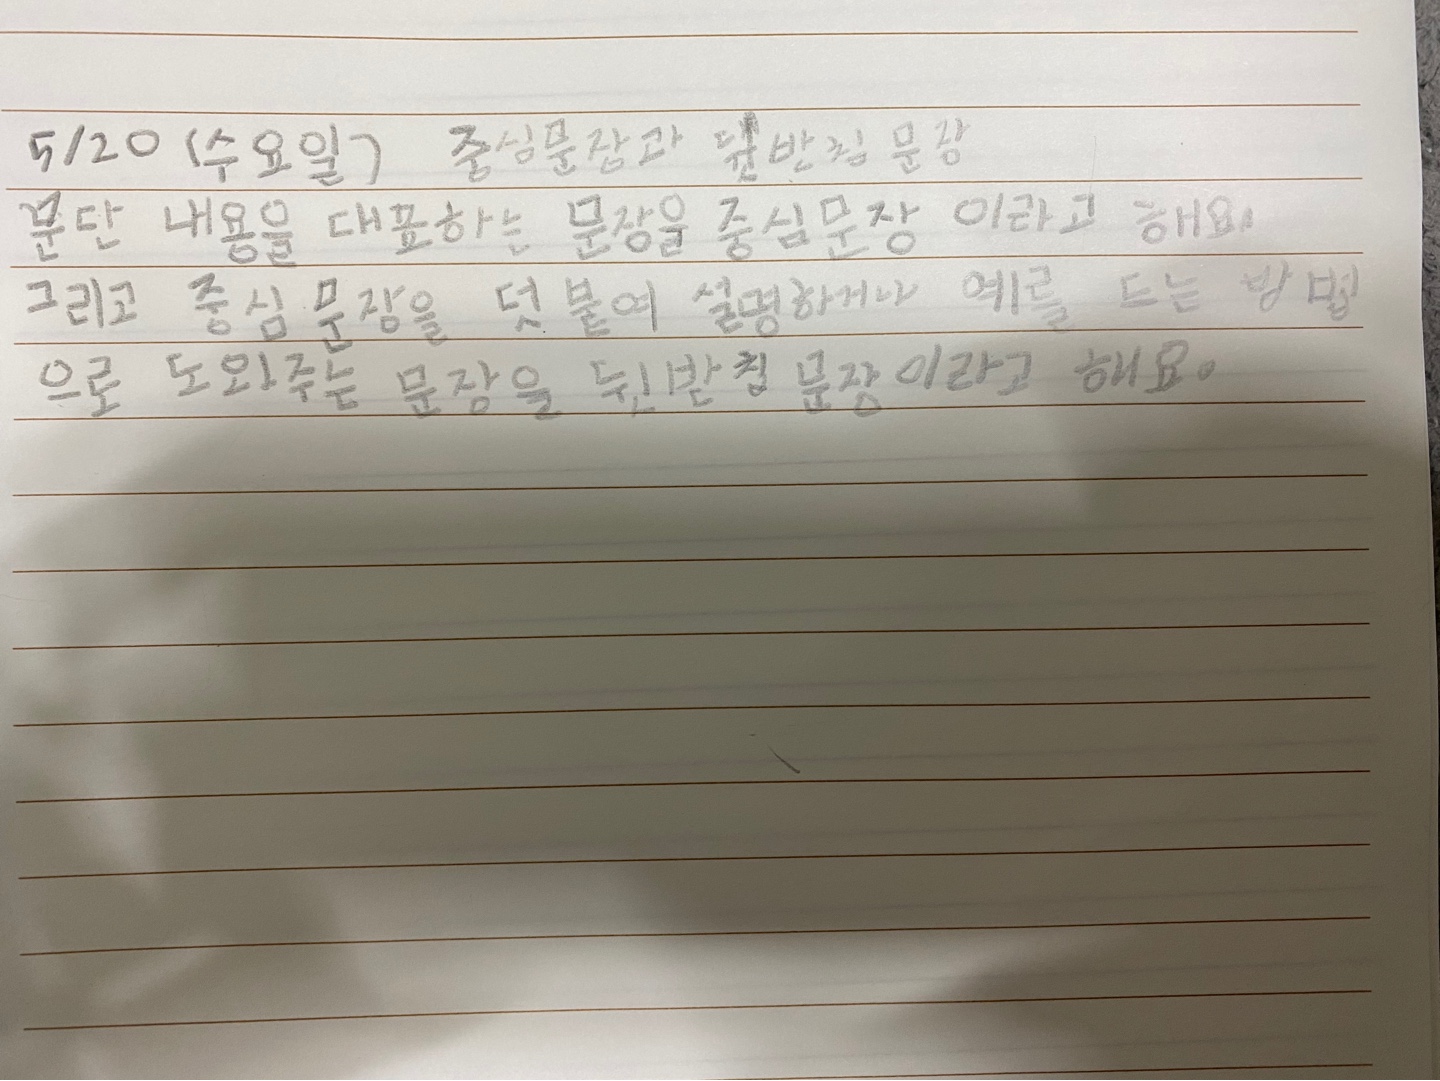 5/20 (수요일) 중심문장과 뒷받침 문장
문단 내용을 대표하는 문장을 중심문장 이라고 해요.
그리고 중심 문장을 덧 붙여 설명하거나 예를 드는 방법
으로 도와주는 문장을 뒷받침 문장이라고 해요.